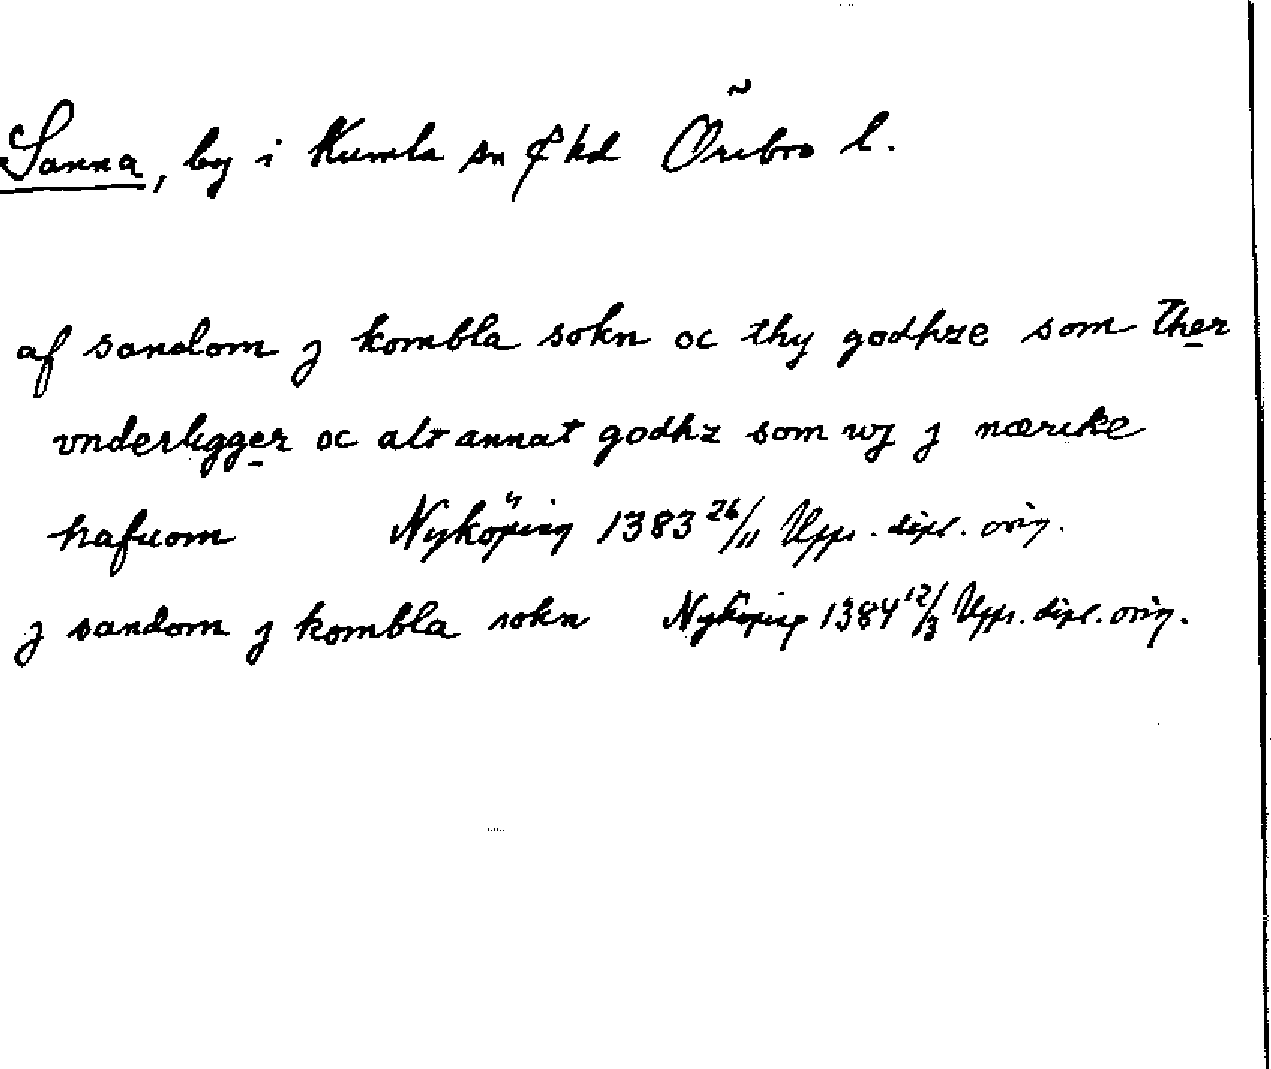 Sanna, by i Kumla sn & hd Örebro l.
af sandom j kombla sokn oc thy godhze som ther
vnderligger oc alt annat godhz som wj j nærike
hafuom Nyköping 1383 26/11 Upps. dipl. orig.
j sandom j kombla sokn Nyköping 1384 12/3 Upps. dipl. orig.